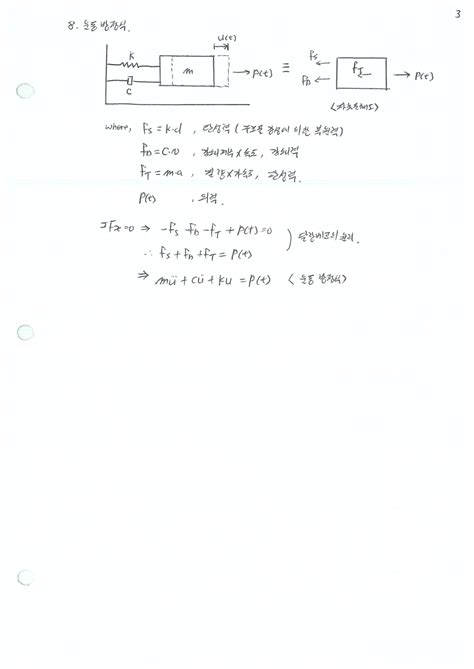 3
8. 운동 방정식.
u(t)
k
m
→ P(t)
≡
fs
fD
fI
→ P(t)
c
<자유물체도>
where, fs = k·d , 탄성력 (구조물 강성에 의한 복원력)
fD = C·v , 감쇠계수×속도, 감쇠력
fI = m·a , 질량×가속도, 관성력.
P(t) , 외력.
ΣFx=0 ⇒ -fs -fD -fI + P(t) =0
달랑베르의 원리.
∴ fs + fD + fI = P(t)
⇒ mü + cu̇ + ku = P(t) < 운동 방정식 >